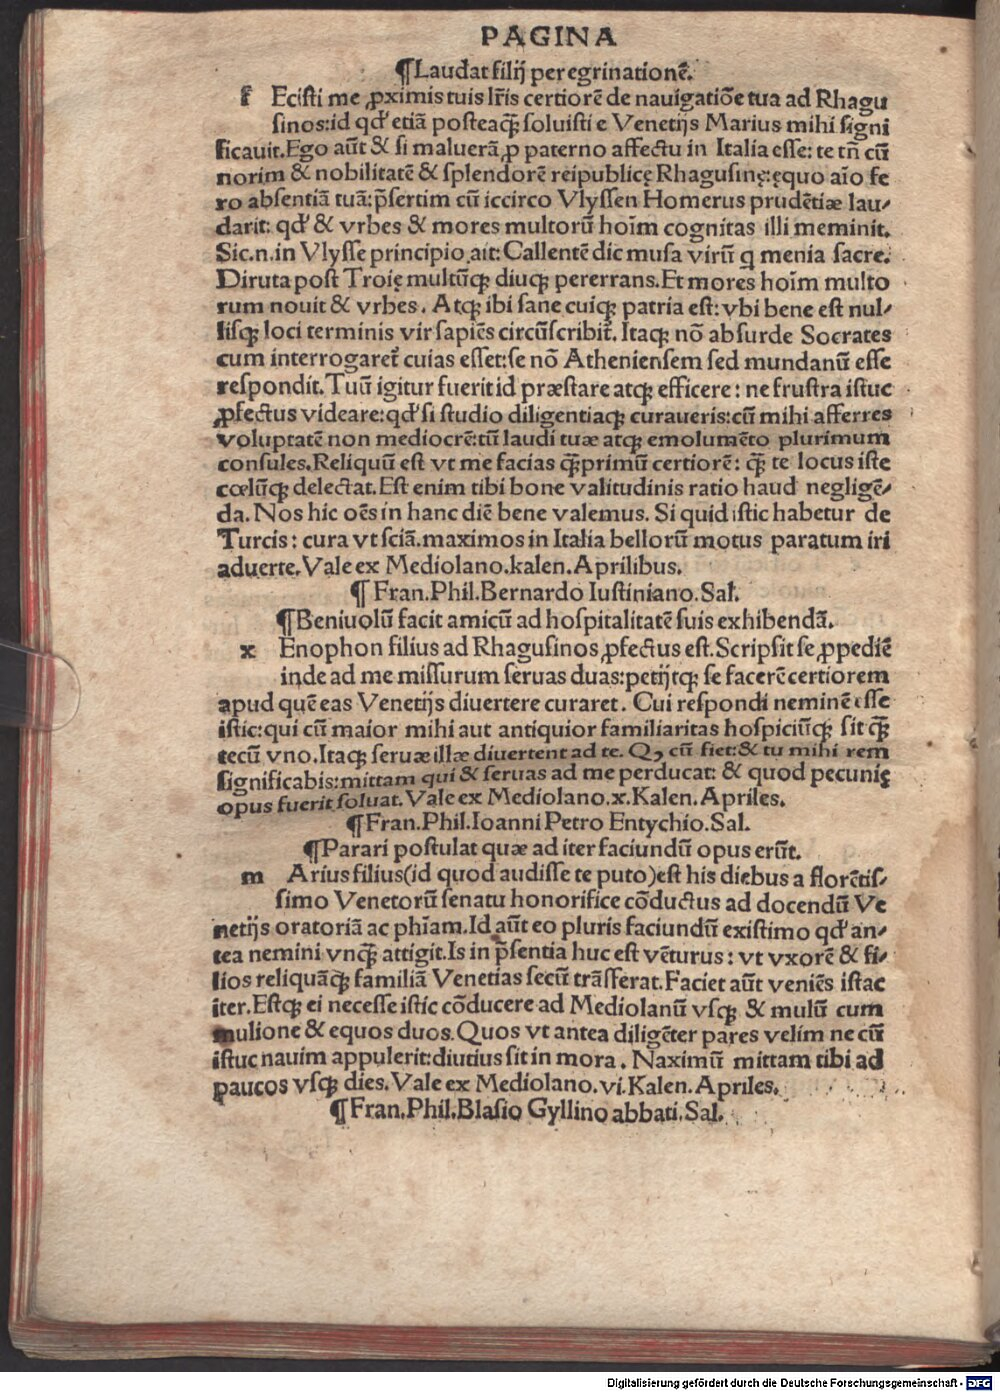 PAGINA
¶Laudat filij peregrinationē.
f Ecisti me ꝓximis tuis lr̄is certiorē de nauigatiōe tua ad Rhagu
sinos:id qd' etiā posteaqꝫ soluisti e Venetijs Marius mihi signi
ficauit.Ego aūt & si maluerā ꝓ paterno affectu in Italia esse: te tn̄ cū
norim & nobilitatē & splendorē reipublicę Rhagusinę:ęquo aīo fe
ro absentiā tuā:p̄sertim cū iccirco Vlyssen Homerus prudētiæ lau⸗
darit: qd' & vrbes & mores multorū hoīm cognitas illi meminit.
Sic.n.in Vlysse principio ait:Callentē dic musa virū q menia sacre.
Diruta post Troię multūqꝫ diuqꝫ pererrans.Et mores hoīm multo
rum nouit & vrbes. Atqꝫ ibi sane cuiqꝫ patria est: vbi bene est nul⸗
lisqꝫ loci terminis vir sapiēs circūscribit̄. Itaqꝫ nō absurde Socrates
cum interrogaret̄ cuias esset:se nō Atheniensem sed mundanū esse
respondit.Tuū igitur fuerit id præstare atqꝫ efficere: ne frustra istuc
ꝓfectus videare:qd' si studio diligentiaqꝫ curaueris:cū mihi afferres
voluptatē non mediocrē:tū laudi tuæ atqꝫ emolumēto plurimum
consules.Reliquū est vt me facias qꝫprimū certiorē: qꝫ te locus iste
cœlūqꝫ delectat.Est enim tibi bone valitudinis ratio haud negligē⸗
da. Nos hic oēs in hanc diē bene valemus. Si quid istic habetur de
Turcis: cura vt sciā.maximos in Italia bellorū motus paratum iri
aduerte.Vale ex Mediolano.kalen.Aprilibus.
¶ Fran.Phil.Bernardo Iustiniano.Sal.
¶Beniuolū facit amicū ad hospitalitatē suis exhibendā.
x Enophon filius ad Rhagusinos ꝓfectus est.Scripsit se ꝓpediē
inde ad me missurum seruas duas:petijtqꝫ se facerē certiorem
apud quē eas Venetijs diuertere curaret. Cui respondi neminē esse
istic:qui cū maior mihi aut antiquior familiaritas hospiciūqꝫ sit qꝫ
tecū vno.Itaqꝫ seruæ illæ diuertent ad te. Qꝫ cū fiet:& tu mihi rem
significabis:mittam qui & seruas ad me perducat: & quod pecunię
opus fuerit soluat.Vale ex Mediolano.x.Kalen.Apriles.
¶Fran.Phil.Ioanni Petro Entychio.Sal.
¶Parari postulat quæ ad iter faciundū opus erūt.
m Arius filius(id quod audisse te puto)est his diebus a florētis⸗
simo Venetorū senatu honorifice cōductus ad docendū Ve
netijs oratoriā ac phīam.Id aūt eo pluris faciundū existimo qd' an⸗
tea nemini vnqꝫ attigit.Is in p̄sentia huc est vēturus: vt vxorē & fi⸗
lios reliquāqꝫ familiā Venetias secū trāsferat.Faciet aūt veniēs istac
iter.Estqꝫ ei necesse istic cōducere ad Mediolanū vsqꝫ & mulū cum
mulione & equos duos.Quos vt antea diligēter pares velim ne cū
istuc nauim appulerit:diutius sit in mora. Naximū mittam tibi ad
paucos vsqꝫ dies.Vale ex Mediolano.vi.Kalen.Apriles.
¶Fran.Phil.Blasio Gyllino abbati.Sal.
Digitalisierung gefördert durch die Deutsche Forschungsgemeinschaft - DFG